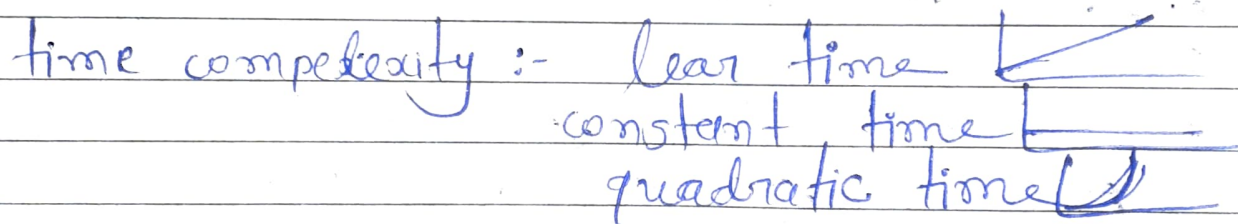 time compelexity :- lear time
constant time
quadratic time